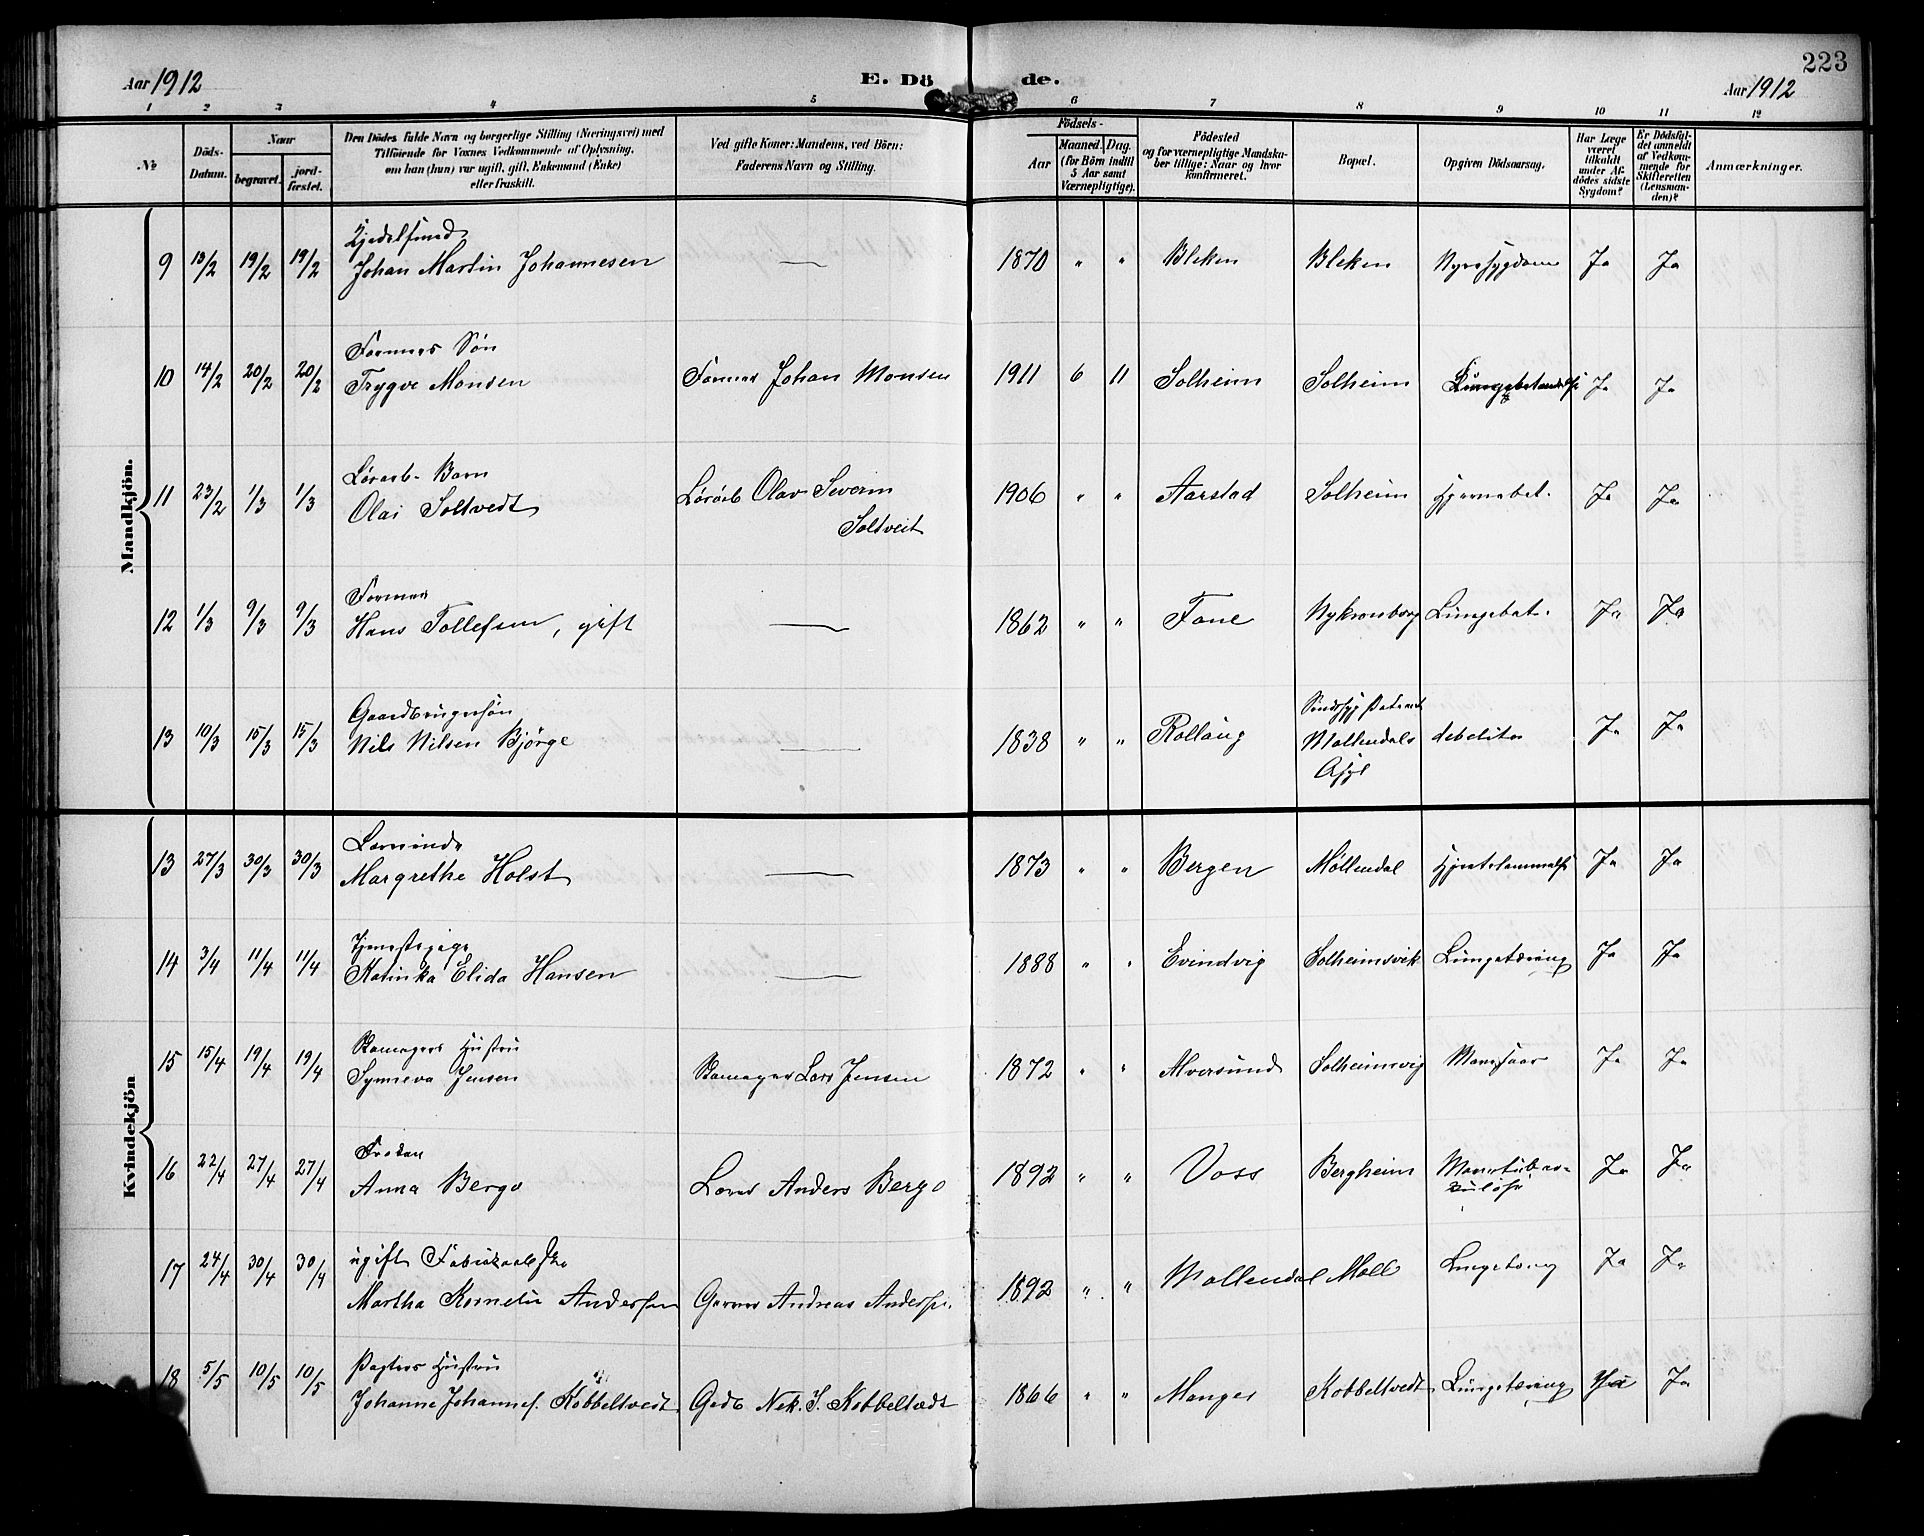 223
Aar 1912
E. Dö de.
Aar 1912
1 2 3 4 5 6 7 8 9 10 11 12
No
Döds-Datum.
Naar
begravet.
jord-fæstet.
Den Dödes fulde Navn og borgerlige Stilling (Næringsvei) med
Tilföiende for Voxnes Vedkommende af Oplysning,
om han (hun) var ugift, gift, Enkemand (Enke)
eller fraskilt.
Ved gifte Koner: Mandens, ved Börn:
Faderens Navn og Stilling.
Födsels-
Aar
Maaned. Dag.
(for Börn indtil
5 Aar samt
Værnepligtige).
Födested
og for værnepligtige Mandska-
ber tillige: Naar og hvor
konfirmeret.
Bopæl.
Opgiven Dödsaarsag.
Har Læge
været
tilkaldt
under Af-
dödes sidste
Sygdom?
Er Dödsfal-
det anmeldt
af Vedkom-
mende for
Skifteretten
(Lensman-
den)?
Anmærkninger.
Mandkjön.
9 13/2 19/2 19/2
Johan Martin Johannesen — 1870 " " Bleken Bleken Nyresygdom Ja Ja
Formers Søn
10 14/2 20/2 20/2 Trygve Monsen Former Johan Monsen 1911 6 11 Solheim Solheim Lungebetændelse Ja Ja
Løsarb. Barn
11 23/2 1/3 1/3 Olai Soltvedt Løsarb Olav Severin
Soltveit 1906 " " Aarstad Solheim Hjernebet. Ja Ja
Former
12 1/3 9/3 9/3 Hans Tollefsen, gift — 1862 " " Fane Nykronborg Lungebet. Ja Ja
Gaardbrugersøn
13 10/3 15/3 15/3 Nils Nilsen Bjørge — 1838 " " Rollaug Sindssyg Patient
Møllendals
Asyl debelitas Ja Ja
Kvindekjön
Lærerinde
13 27/3 30/3 30/3 Margrethe Holst — 1873 " " Bergen Møllendal Hjertelammelse Ja Ja
Tjenestepige
14 3/4 11/4 11/4 Katinka Elida Hansen — 1888 " " Evindvig Solheimsvik Lungetæring Ja Ja
Hustru
15 15/4 19/4 19/4 Synneva Jensen Lars Jensen 1872 " " Alversund Solheimsvig Mavesaar Ja Ja
Frøken
16 22/4 27/4 27/4 Anna Bergo Lærer Anders Bergo 1892 " " Voss Bergheim Mavetuber-
kulose Ja Ja
ugift Fabrikarbeiderske
17 24/4 30/4 30/4 Martha Kornelie Andersen Garver Andreas Anderse. 1892 " " Møllendal Møll Lungetæring Ja Ja
Pagters Hustru
18 5/5 10/5 10/5 Johanne Johannes. Kobbeltvedt Gdb Nek. J. Kobbeltvedt 1866 " " Manger Kobbeltvedt Lungetæring Ja Ja